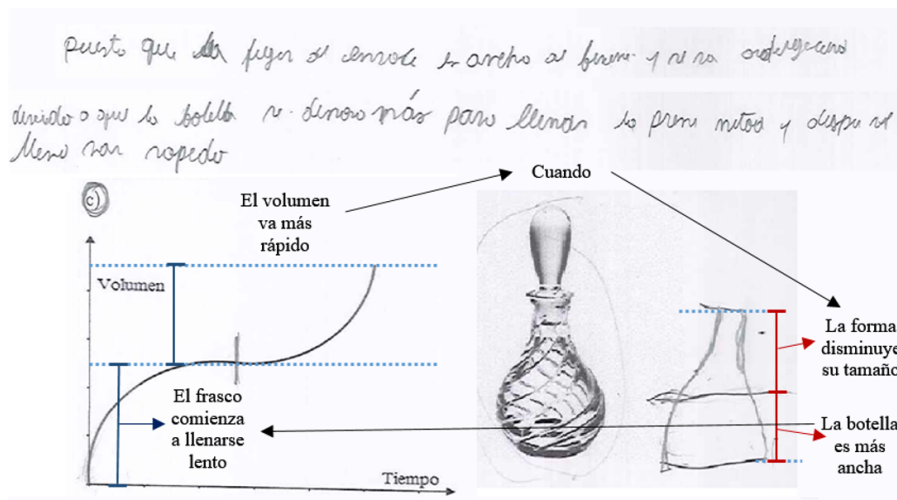 puesto que la de envace es ancho al y se va
a que la botella se demora más para llenar la mitad y despues se
lleno mas rapedo
Cuando
c)
El volumen
va más
rápido
Volumen
El frasco
comienza
a llenarse
lento
Tiempo
La forma
disminuye
su tamaño
La botella
es más
ancha